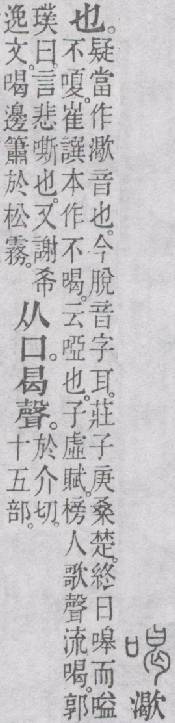 喝 㵣
也。
疑當作㵣音也。今脫音字耳。莊子庚桑楚。終日嗥而嗌
不嗄。崔譔本作不喝。云啞也。子虛賦。榜人歌聲流喝。郭
璞曰。言悲嘶也。又謝希
逸文。喝邊簫於松霧。
从口。曷聲。
於介切。
十五部。